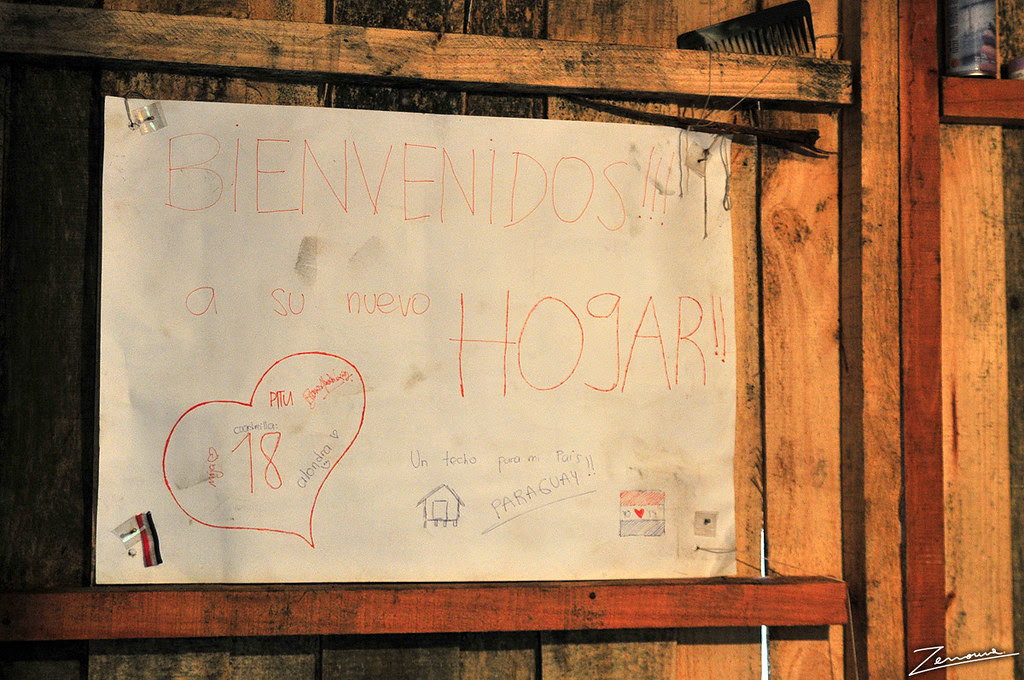 BIENVENIDOS!!!
a su nuevo HOGAR!!
PITU
cuadrilla:
18
alondra
Un techo para mi País
PARAGUAY!!
Zenoura